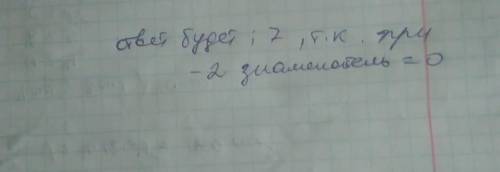 ответ будет : 7 , т.к. при
-2 знаменатель = 0